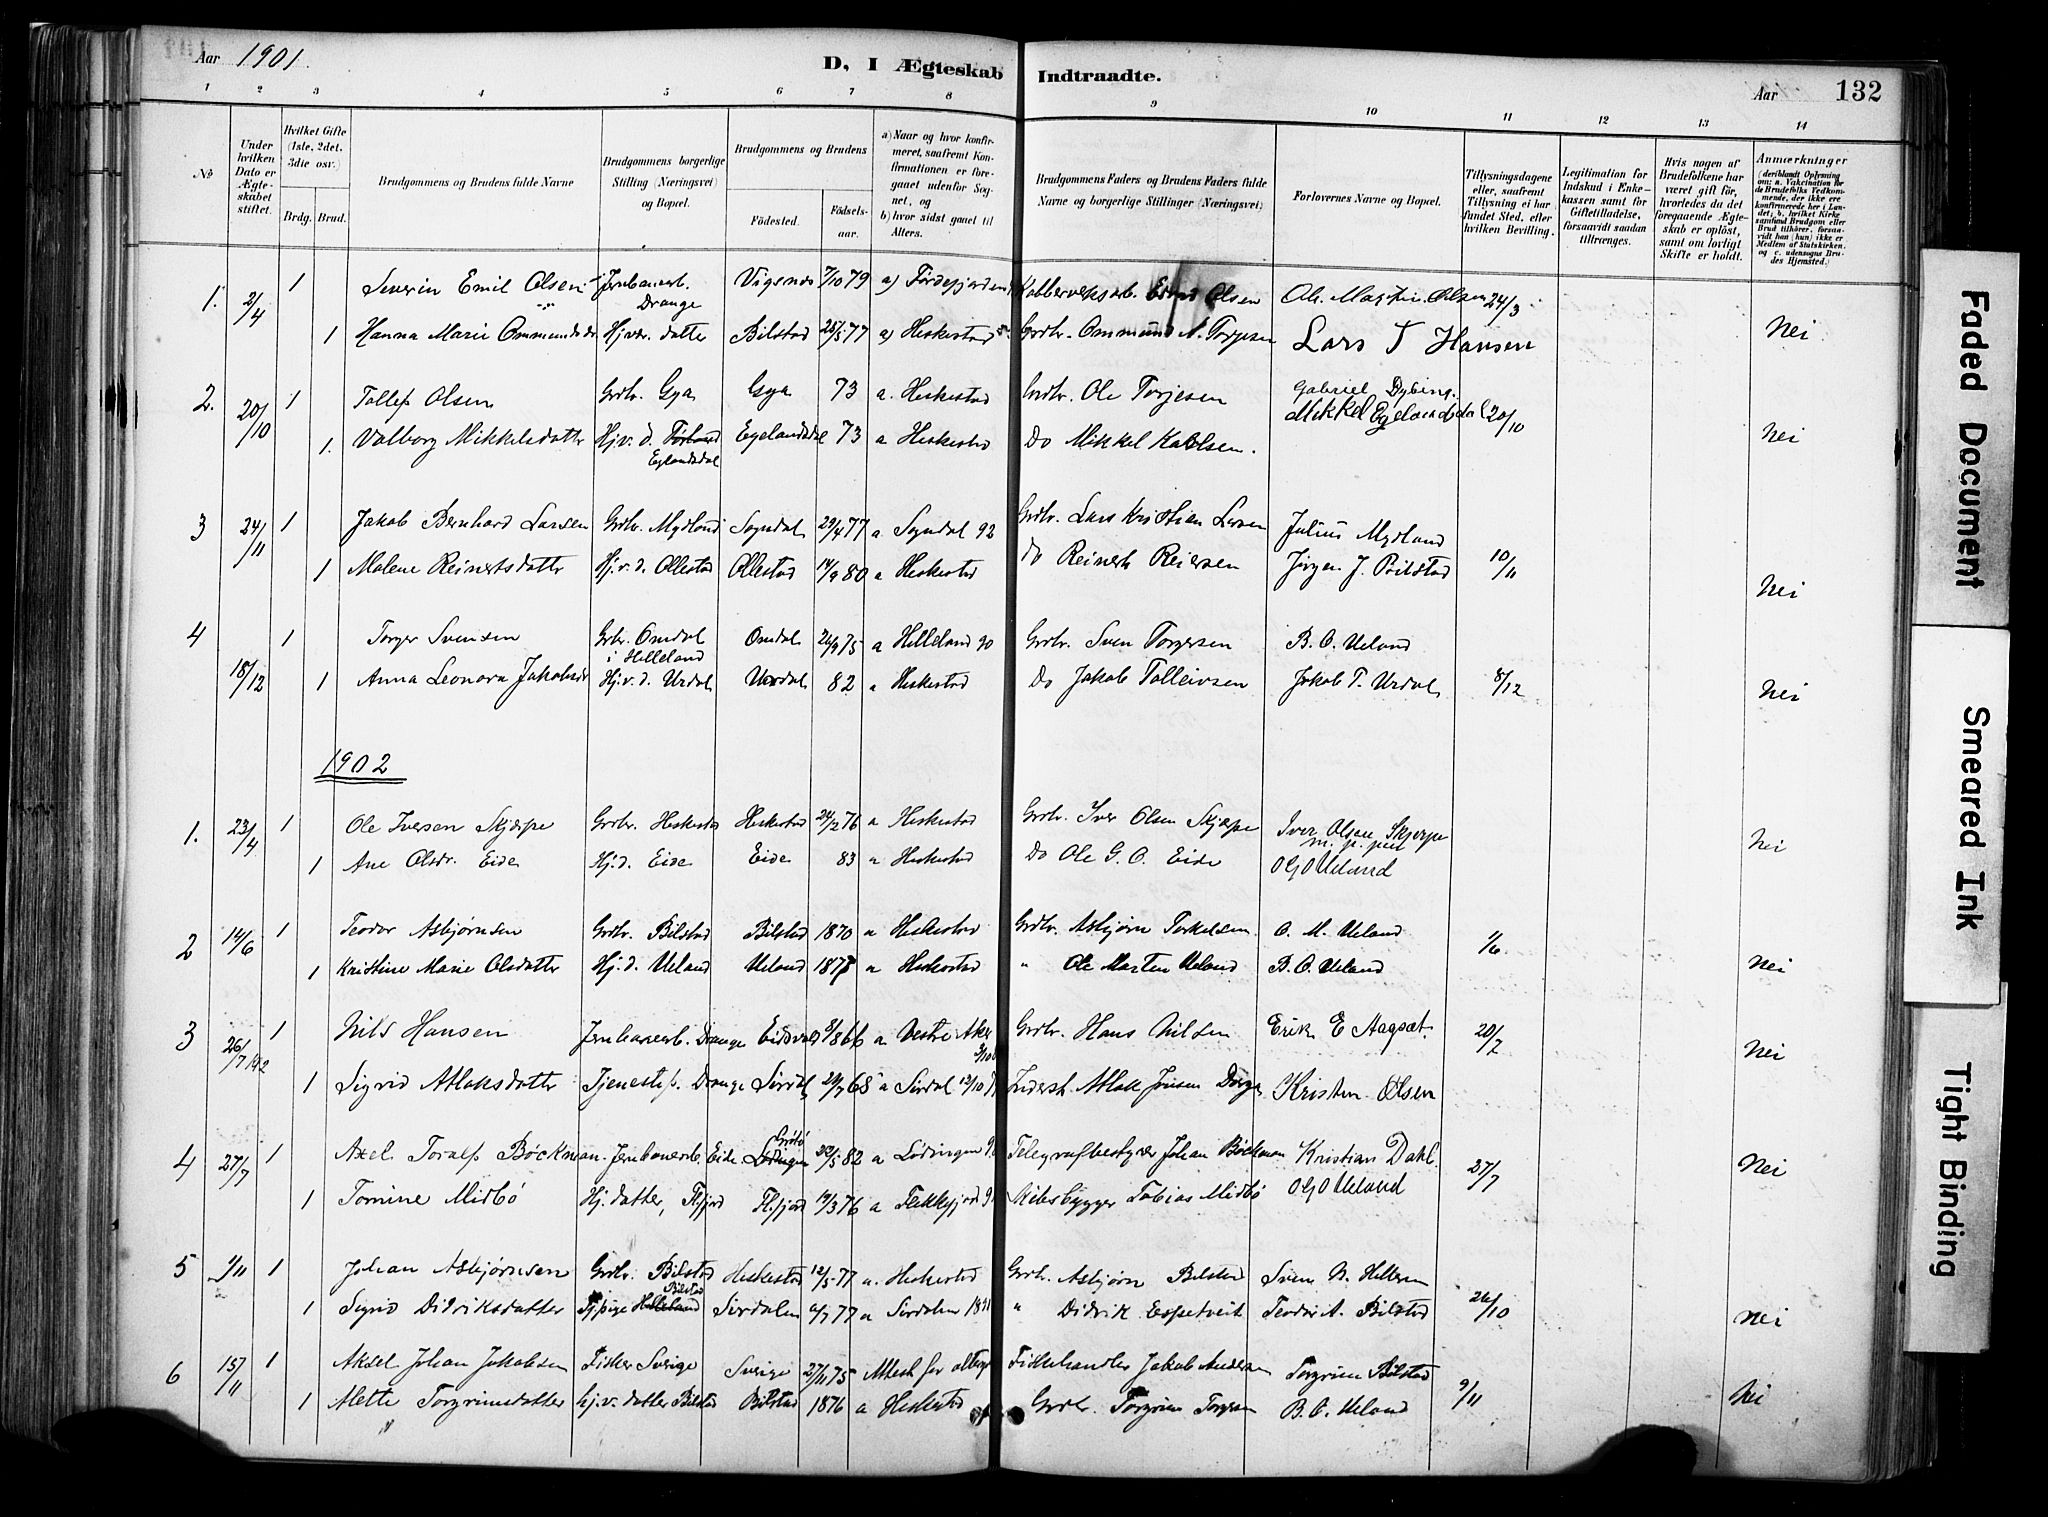 Aar 1901.
D, I Ægteskab Indtraadte.
Aar 132
1 2 3 4 5 6 7 8 9 10 11 12 13 14
No
Under hvilken Dato er Ægteskabet stiftet.
Hvilket Gifte (1ste, 2det, 3die osv.)
Brdg. Brud.
Brudgommens og Brudens fulde Navne
Brudgommens borgerlige Stilling (Næringsvei) og Bopæl.
Brudgommens og Brudens
Fødested. Fødselsaar.
a) Naar og hvor konfirmeret, saafremt Konfirmationen er foregaaet udenfor Sognet, og
b) hvor sidst gaaet til Alters.
Brudgommens Faders og Brudens Faders fulde Navne og borgerlige Stillinger (Næringsvei)
Forlovernes Navne og Bopæl.
Tillysningsdagene eller, saafremt Tillysning ei har fundet Sted, efter hvilken Bevilling.
Legitimation for Indskud i Enkekassen samt for Giftetilladelse, forsaavidt saadan tiltrænges.
Hvis nogen af Brudefolkene har været gift før, hvorledes da det foregaaende Ægteskab er opløst, samt om lovligt Skifte er holdt.
Anmærkninger (deriblandt Oplysning om: a. Vakcination for de Brudefolks Vedkommende, der ikke ere konfirmerede her i Landet; b. hvilket Kirkesamfund Brudgom eller Brud tilhører, forsaavidt han (hun) ikke er Medlem af Statskirken, og c. udensogns Brudes Hjemsted.)
1. 2/4 1 Severin Emil Olsen Jernbanearb. Drange Vigsnæs 7/10 79 a) Fördesfjorden Kobberverksarb. Olsen Ole Martin Olsen 24/3
1 Hanna Marie Ommundsdr. Hjvær. datter Bilstad 28/5 77 a) Heskestad Grdbr. Ommund N. Torjesen Lars T Hansen Nei
2. 20/10 1 Tollef Olsen Grdbr. Gya Gya 73 a. Heskestad Grdbr. Ole Torjesen Gabriel Dybing.
1. Valborg Mikkelsdatter Hj.v. d. Eglandsdal Egelandsdal 73 a Heskestad Do Mikkel Karlsen. Mikkel Egelandsdal 20/10 Nei
3 24/11 1 Jakob Bernhard Larsen Grdbr. Mydland Sogndal 29/4 77 a Sogndal 92 Grdbr. Lars Kristian Larsen Julius Mydland
1 Malene Reinertsdatter Hj.v. d. Ollestad Ollestad 14/9 80 a Heskestad Do Reinert Reiersen Jörgen J. Bilstad 10/11 Nei
4 18/12 1 Torger Svensen Grbr. Omdal i Helleland Omdal 26/9 75 a Helleland 90 Grdbr. Sven Torgersen B. O. Ueland
1 Anna Leonora Jakobsdr Hj.v. d. Urdal Urdal 82 a Heskestad Do Jakob Tolleivsen Jakob T. Urdal 8/12 Nei
1902
1. 23/4 1 Ole Iversen Skjerpe Grdbr. Heskestad Heskestad 24/2 76 a Heskestad Grdbr. Iver Olsen Skjerpe Iver Olsen Skjerpe m. p. pen
1 Ane Olsdr. Eide Hj. d. Eide Eide 83 a Heskestad Do Ole G. O. Eide O G O Ueland Nei
2 14/6 1 Teodor Asbjørnsen Grdbr. Bilstad Bilstad 1870 a Heskestad Grdbr. Asbjørn Torkelsen O. M. Ueland 1/6
1 Kristine Marie Olsdatter Hj. d. Ueland Ueland 1878 a Heskestad " Ole Marten Ueland B. O. Ueland Nei
3 26/7 1902 1 Nils Hansen Jernbanearb. Drange Eidsvold 8/8 66 a Vestre Aker Grdbr. Hans Nilsen Erik E Aagsæt. 20/7
1 Sigrid Atlaksdatter Tjenestep. Drange Sirdal 29/7 68 a Sirdal 12/10 Inderst. Atlak Jonsen Dorge Kristen Olsen Nei
4 27/7 1 Axel Toralf Böckman. Jernbanearb. Eide Lödingen 22/5 82 a Lödingen Telegrafbestyrer Johan Böckman Kristian Dahl.
1 Tomine Midbö Hj. datter, Flfjord Flfjord 19/3 76 a Flekkefjord Skibsbygger Tobias Midbö O G O Ueland 27/7 Nei
5 9/11 1 Johan Asbjørnsen Grdbr. Bilstad Heskestad 12/5 77 a. Heskestad Grdbr. Asbjørn Bilstad Sven N. Helleren
1 Sigrid Didriksdatter Tjpige Bilstad Sirdalen 6/7 77 a Sirdalen 1891 " Didrik Espetveit Teodor A. Bilstad 26/10 Nei
6 15/11 1 Aksel Johan Jakobsen Fisker Sverige Sverige 27/11 75 Attest for Fiskehandler Jakob Andersen Torgrim Bilstad
1 Mette Torgrimsdatter hj.v. datter Bilstad Bilstad 1876 a Heskestad Grdbr. Torgrim Torgersen B. O. Ueland 9/11 Nei
Faded Document
Smeared Ink
Tight Binding